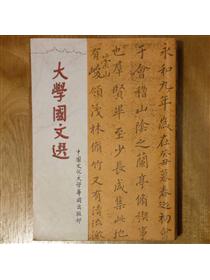 永和九年歲在癸丑暮春之初
會稽山陰之蘭亭脩禊事
也群賢畢至少長咸集此地
有崇山峻領茂林脩竹又有清流激
大學國文選
中國文化大學華岡出版部